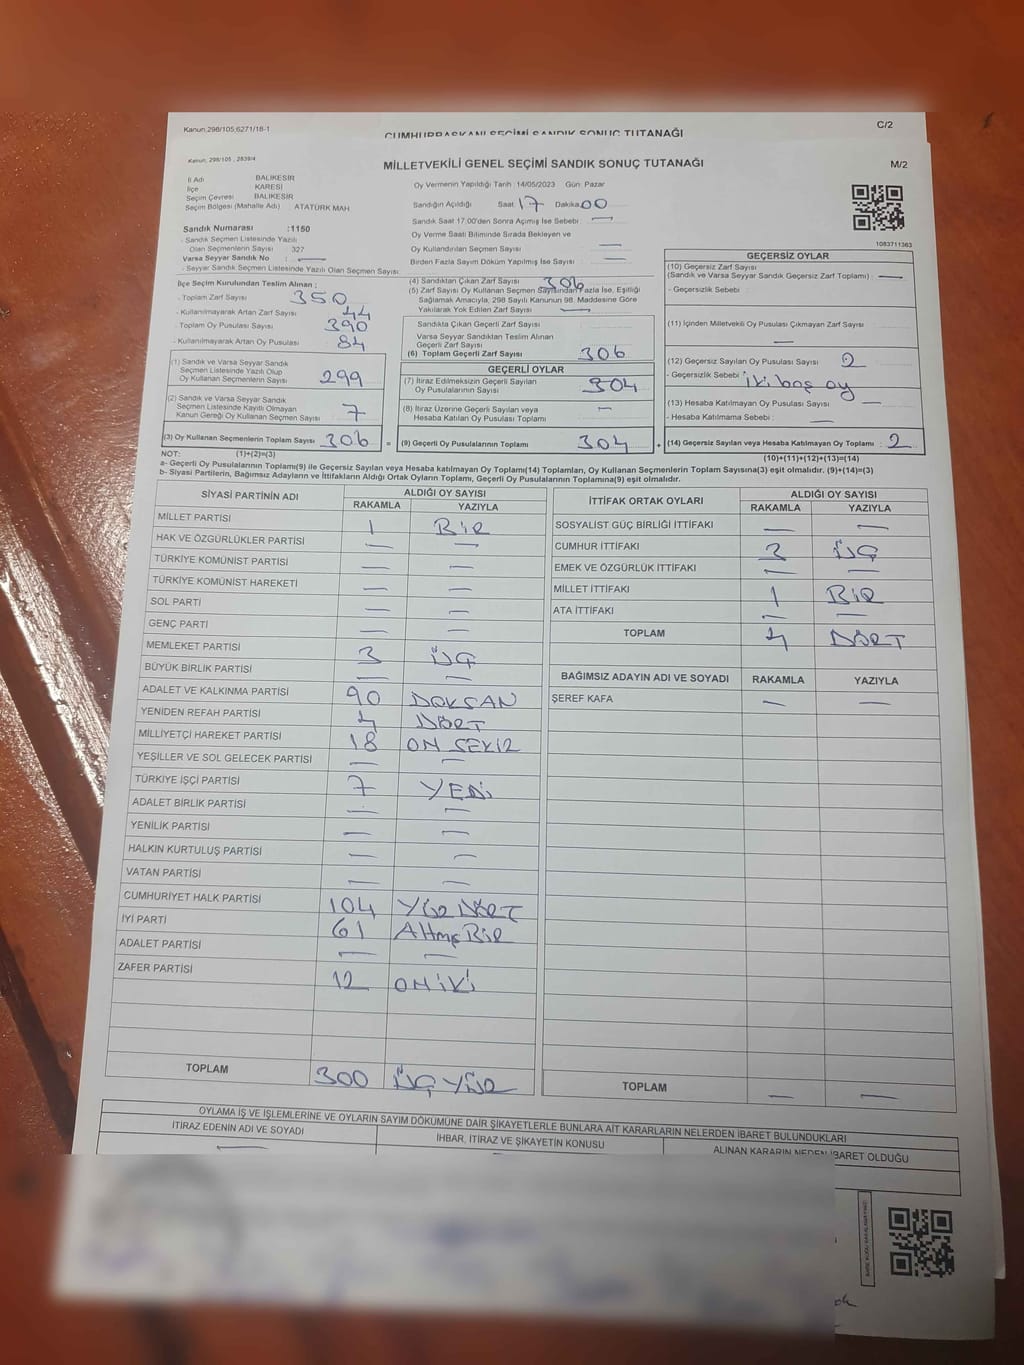 Kanun;298/105;6271/18-1
C/2
CUMHURBAŞKANI SEÇİMİ SANDIK SONUÇ TUTANAĞI
Kanun, 298/105 , 2839/4
MİLLETVEKİLİ GENEL SEÇİMİ SANDIK SONUÇ TUTANAĞI
M/2
İl Adı BALIKESİR
İlçe KARESİ
Seçim Çevresi BALIKESİR
Seçim Bölgesi (Mahalle Adı) : ATATÜRK MAH.
Oy Vermenin Yapıldığı Tarih : 14/05/2023 Gün: Pazar
Sandığın Açıldığı Saat 17 Dakika 00
Sandık Saat 17.00'den Sonra Açımış İse Sebebi : —
Oy Verme Saati Bitiminde Sırada Bekleyen ve
Oy Kullandırılan Seçmen Sayısı : —
Birden Fazla Sayım Döküm Yapılmış İse Sayısı : —
1083711363
Sandık Numarası :1150
- Sandık Seçmen Listesinde Yazılı
Olan Seçmenlerin Sayısı : 327
Varsa Seyyar Sandık No : —
- Seyyar Sandık Seçmen Listesinde Yazılı Olan Seçmen Sayısı:
İlçe Seçim Kurulundan Teslim Alınan ;
- Toplam Zarf Sayısı : 350
- Kullanılmayarak Artan Zarf Sayısı : 44
- Toplam Oy Pusulası Sayısı : 390
- Kullanılmayarak Artan Oy Pusulası : 84
(1) Sandık ve Varsa Seyyar Sandık
Seçmen Listesinde Yazılı Olup
Oy Kullanan Seçmenlerin Sayısı : 299
(2) Sandık ve Varsa Seyyar Sandık
Seçmen Listesinde Kayıtlı Olmayan
Kanun Gereği Oy Kullanan Seçmen Sayısı : 7
(3) Oy Kullanan Seçmenlerin Toplam Sayısı : 306
(4) Sandıktan Çıkan Zarf Sayısı : 306
(5) Zarf Sayısı Oy Kullanan Seçmen Sayısından Fazla İse, Eşitliği
Sağlamak Amacıyla, 298 Sayılı Kanunun 98. Maddesine Göre
Yakılarak Yok Edilen Zarf Sayısı : —
Sandıkta Çıkan Geçerli Zarf Sayısı :
Varsa Seyyar Sandıktan Teslim Alınan
Geçerli Zarf Sayısı :
(6) Toplam Geçerli Zarf Sayısı : 306
GEÇERLİ OYLAR
(7) İtiraz Edilmeksizin Geçerli Sayılan
Oy Pusulalarının Sayısı : 304
(8) İtiraz Üzerine Geçerli Sayılan veya
Hesaba Katılan Oy Pusulası Toplamı : —
= (9) Geçerli Oy Pusulalarının Toplamı : 304
GEÇERSİZ OYLAR
(10) Geçersiz Zarf Sayısı
(Sandık ve Varsa Seyyar Sandık Geçersiz Zarf Toplamı) : —
- Geçersizlik Sebebi :
(11) İçinden Milletvekili Oy Pusulası Çıkmayan Zarf Sayısı :
—
(12) Geçersiz Sayılan Oy Pusulası Sayısı : 2
- Geçersizlik Sebebi : iki boş oy
(13) Hesaba Katılmayan Oy Pusulası Sayısı : —
- Hesaba Katılmama Sebebi : —
+ (14) Geçersiz Sayılan veya Hesaba Katılmayan Oy Toplamı : 2
NOT: (1)+(2)=(3)
(10)+(11)+(12)+(13)=(14)
a- Geçerli Oy Pusulalarının Toplamı(9) ile Geçersiz Sayılan veya Hesaba katılmayan Oy Toplamı(14) Toplamları, Oy Kullanan Seçmenlerin Toplam Sayısına(3) eşit olmalıdır. (9)+(14)=(3)
b- Siyasi Partilerin, Bağımsız Adayların ve İttifakların Aldığı Ortak Oyların Toplamı, Geçerli Oy Pusulalarının Toplamına(9) eşit olmalıdır.
SİYASİ PARTİNİN ADI ALDIĞI OY SAYISI
RAKAMLA YAZIYLA
MİLLET PARTİSİ 1 BİR
HAK VE ÖZGÜRLÜKLER PARTİSİ — —
TÜRKİYE KOMÜNİST PARTİSİ — —
TÜRKİYE KOMÜNİST HAREKETİ — —
SOL PARTİ — —
GENÇ PARTİ — —
MEMLEKET PARTİSİ 3 ÜÇ
BÜYÜK BİRLİK PARTİSİ — —
ADALET VE KALKINMA PARTİSİ 90 DOKSAN
YENİDEN REFAH PARTİSİ 4 DÖRT
MİLLİYETÇİ HAREKET PARTİSİ 18 ON SEKİZ
YEŞİLLER VE SOL GELECEK PARTİSİ — —
TÜRKİYE İŞÇİ PARTİSİ 7 YEDİ
ADALET BİRLİK PARTİSİ — —
YENİLİK PARTİSİ — —
HALKIN KURTULUŞ PARTİSİ — —
VATAN PARTİSİ — —
CUMHURİYET HALK PARTİSİ 104 YÜZ DÖRT
İYİ PARTİ 61 Altmış BİR
ADALET PARTİSİ — —
ZAFER PARTİSİ 12 ON İKİ
TOPLAM 300 ÜÇ YÜZ
İTTİFAK ORTAK OYLARI ALDIĞI OY SAYISI
RAKAMLA YAZIYLA
SOSYALİST GÜÇ BİRLİĞİ İTTİFAKI — —
CUMHUR İTTİFAKI 3 ÜÇ
EMEK VE ÖZGÜRLÜK İTTİFAKI — —
MİLLET İTTİFAKI 1 BİR
ATA İTTİFAKI — —
TOPLAM 4 DÖRT
BAĞIMSIZ ADAYIN ADI VE SOYADI RAKAMLA YAZIYLA
ŞEREF KAFA — —
TOPLAM — —
OYLAMA İŞ VE İŞLEMLERİNE VE OYLARIN SAYIM DÖKÜMÜNE DAİR ŞİKAYETLERLE BUNLARA AİT KARARLARIN NELERDEN İBARET BULUNDUKLARI
İTİRAZ EDENİN ADI VE SOYADI İHBAR, İTİRAZ VE ŞİKAYETİN KONUSU ALINAN KARARIN NEDEN İBARET OLDUĞU